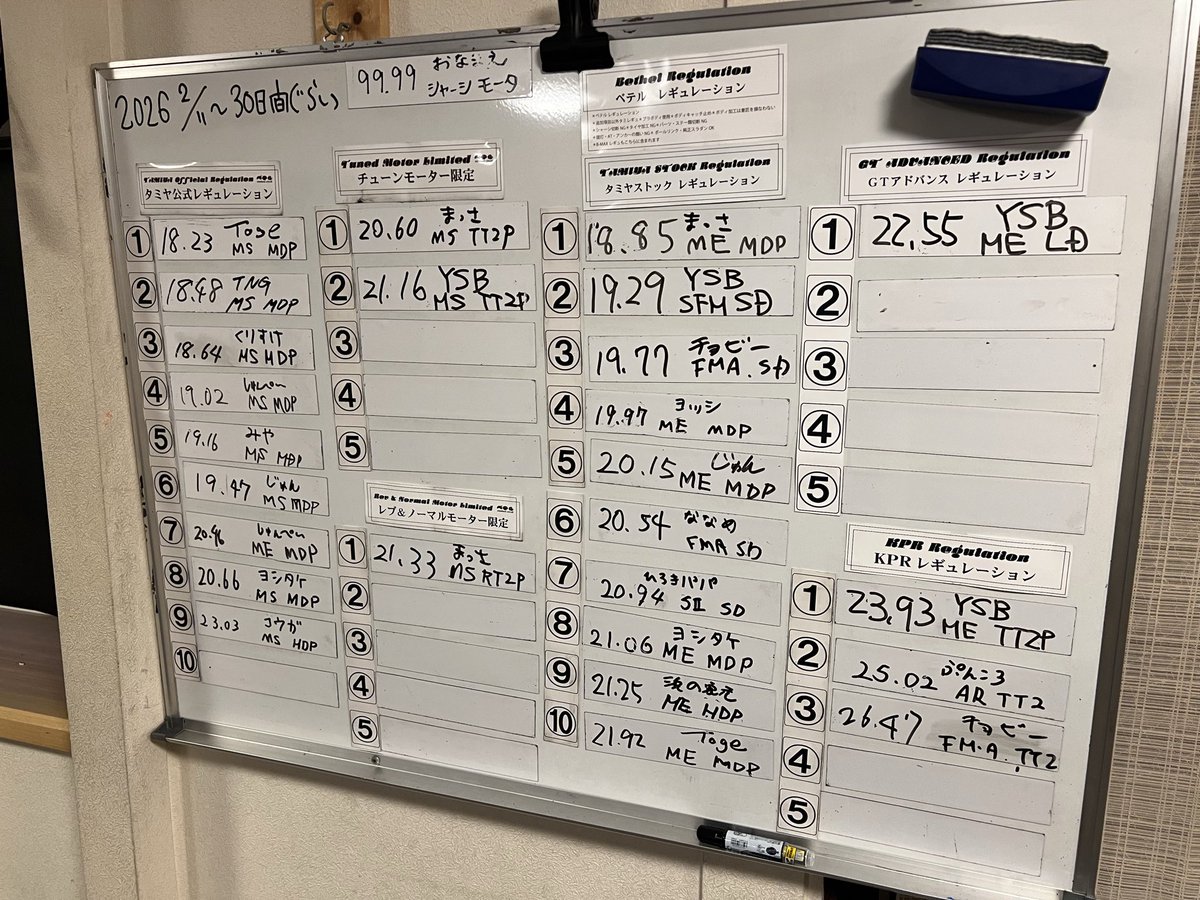 2026 2/11～30日間ぐらい
99.99 おなまえ
シャーシ モータ
Tamiya Official Regulation
タミヤ公式レギュレーション
① 18.23 Toge
MS MDP
② 18.48 TNG
MS MDP
③ 18.64 くりすけ
MS HDP
④ 19.02 しゅんぺー
MS MDP
⑤ 19.16 みや
MS MDP
⑥ 19.47 じゅん
MS MDP
⑦ 20.46
ME MDP
⑧ 20.66 ヨシタケ
MS MDP
⑨ 23.03 コウガ
MS HDP
⑩
Tuned Motor Limited
チューンモーター限定
① 20.60 まっさ
MS TT2P
② 21.16 YSB
MS TT2P
③
④
⑤
Rev & Normal Motor Limited
レブ&ノーマルモーター限定
① 21.33 まっさ
MS RT2P
②
③
④
⑤
Bethel Regulation
ベテル レギュレーション
ベテルレギュレーション
TAMIYA STOCK Regulation
タミヤストック レギュレーション
① 18.85 まっさ
ME MDP
② 19.29 YSB
SFM SD
③ 19.77 チョビー
FMA. SD
④ 19.97 ヨッシ
ME MDP
⑤ 20.15 じゅん
ME MDP
⑥ 20.54 ななめ
FMA SD
⑦ 20.94 ひろきパパ
SII SD
⑧ 21.06 ヨシタケ
ME MDP
⑨ 21.25
ME HDP
⑩ 21.92 Toge
ME MDP
GT ADVANCED Regulation
GTアドバンス レギュレーション
① 22.55 YSB
ME LD
②
③
④
⑤
KPR Regulation
KPR レギュレーション
① 23.93 YSB
ME TT2P
② 25.02 ぷんころ
AR TT2
③ 26.47 チョビー
FM-A. TT2
④
⑤